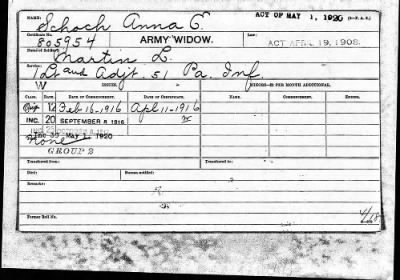 NAME: Schoch Anna C. ACT OF MAY 1, 1920
Certificate No. 805954 ARMY WIDOW. Law: ACT APRIL 19, 1908.
Name of Soldier: Martin L.
Service: 1 Lt and Adjt. 51 Pa. Inf.
W ISSUED. MINORS—$2 PER MONTH ADDITIONAL.
CLASS. RATE. DATE OF COMMENCEMENT. DATE OF CERTIFICATE. NAME. COMMENCEMENT. NAME. COMMENCEMENT.
Orig 12 Feb 16-1916 Apl 11-1916
INC. 20 SEPTEMBER 8, 1916
INC 25 OCTOBER 6, 1917
Inc 30 May 1, 1920
None
GROUP 2
Transferred from: Transferred to:
Died: Bureau notified:
Remarks:
Former Roll No.